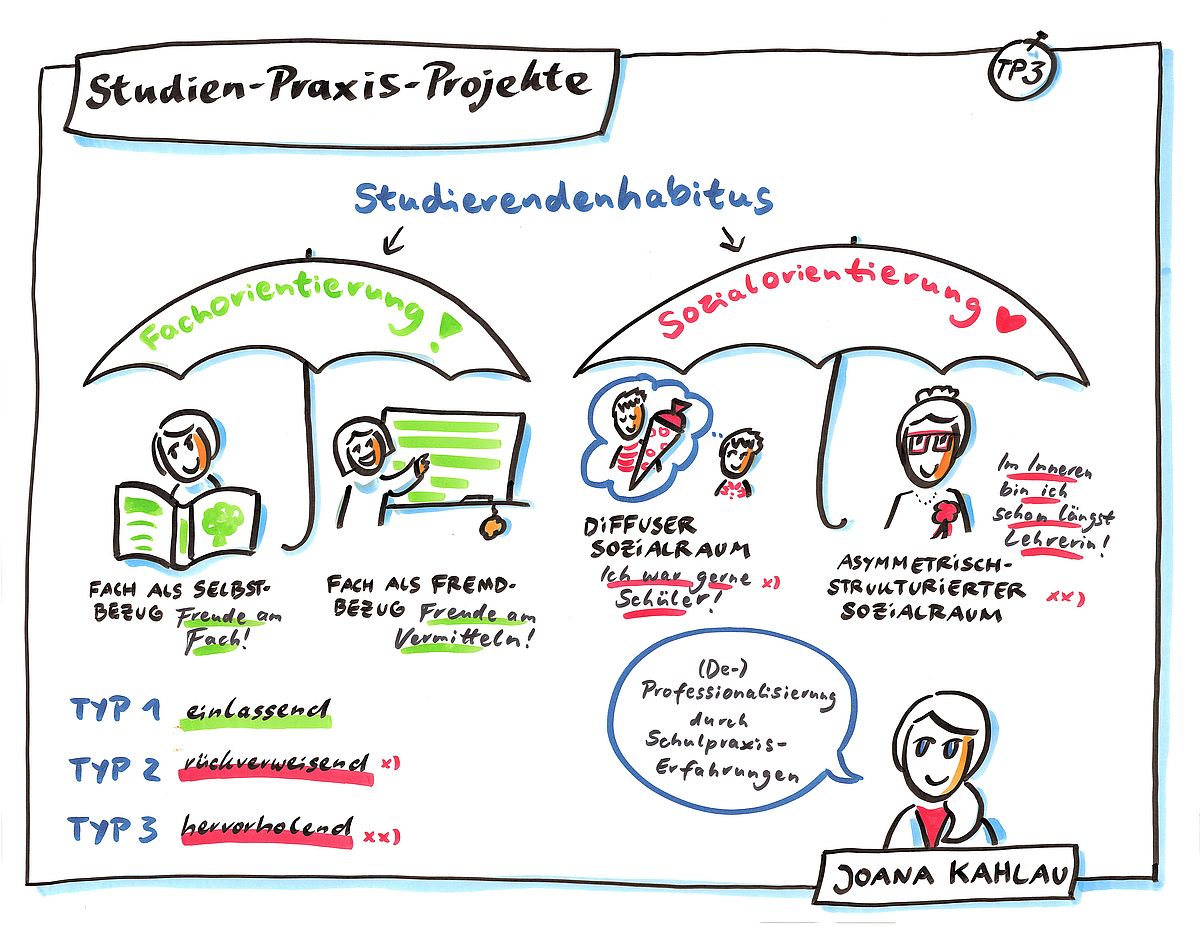 Studien-Praxis-Projekte
TP3
Studierendenhabitus
Fachorientierung!
Sozialorientierung
FACH ALS SELBST-
BEZUG Freude am
Fach!
FACH ALS FREMD-
BEZUG Freude am
Vermitteln!
DIFFUSER
SOZIALRAUM
Ich war gerne x)
Schüler!
Im Inneren
bin ich
schon längst
Lehrerin!
ASYMMETRISCH-
STRUKTURIERTER xx)
SOZIALRAUM
TYP 1 einlassend
TYP 2 rückverweisend x)
TYP 3 hervorholend xx)
(De-)
Professionalisierung
durch
Schulpraxis-
Erfahrungen
JOANA KAHLAU